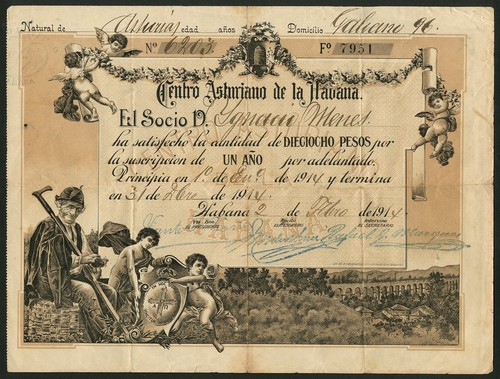 Natural de Asturias edad años Domicilio Galiano 96.
Nº 6203 Fº 7951
Centro Asturiano de la Habana.
El Socio D. Ignacio Menes
ha satisfecho la cantidad de DIECIOCHO PESOS por
la suscripcion de UN AÑO por adelantado.
Principia en 1º de En º de 1914 y termina
en 31 de Dbre de 1914.
Habana 2 de Fbro de 1914
EL PRESIDENTE EL TESORERO EL SECRETARIO